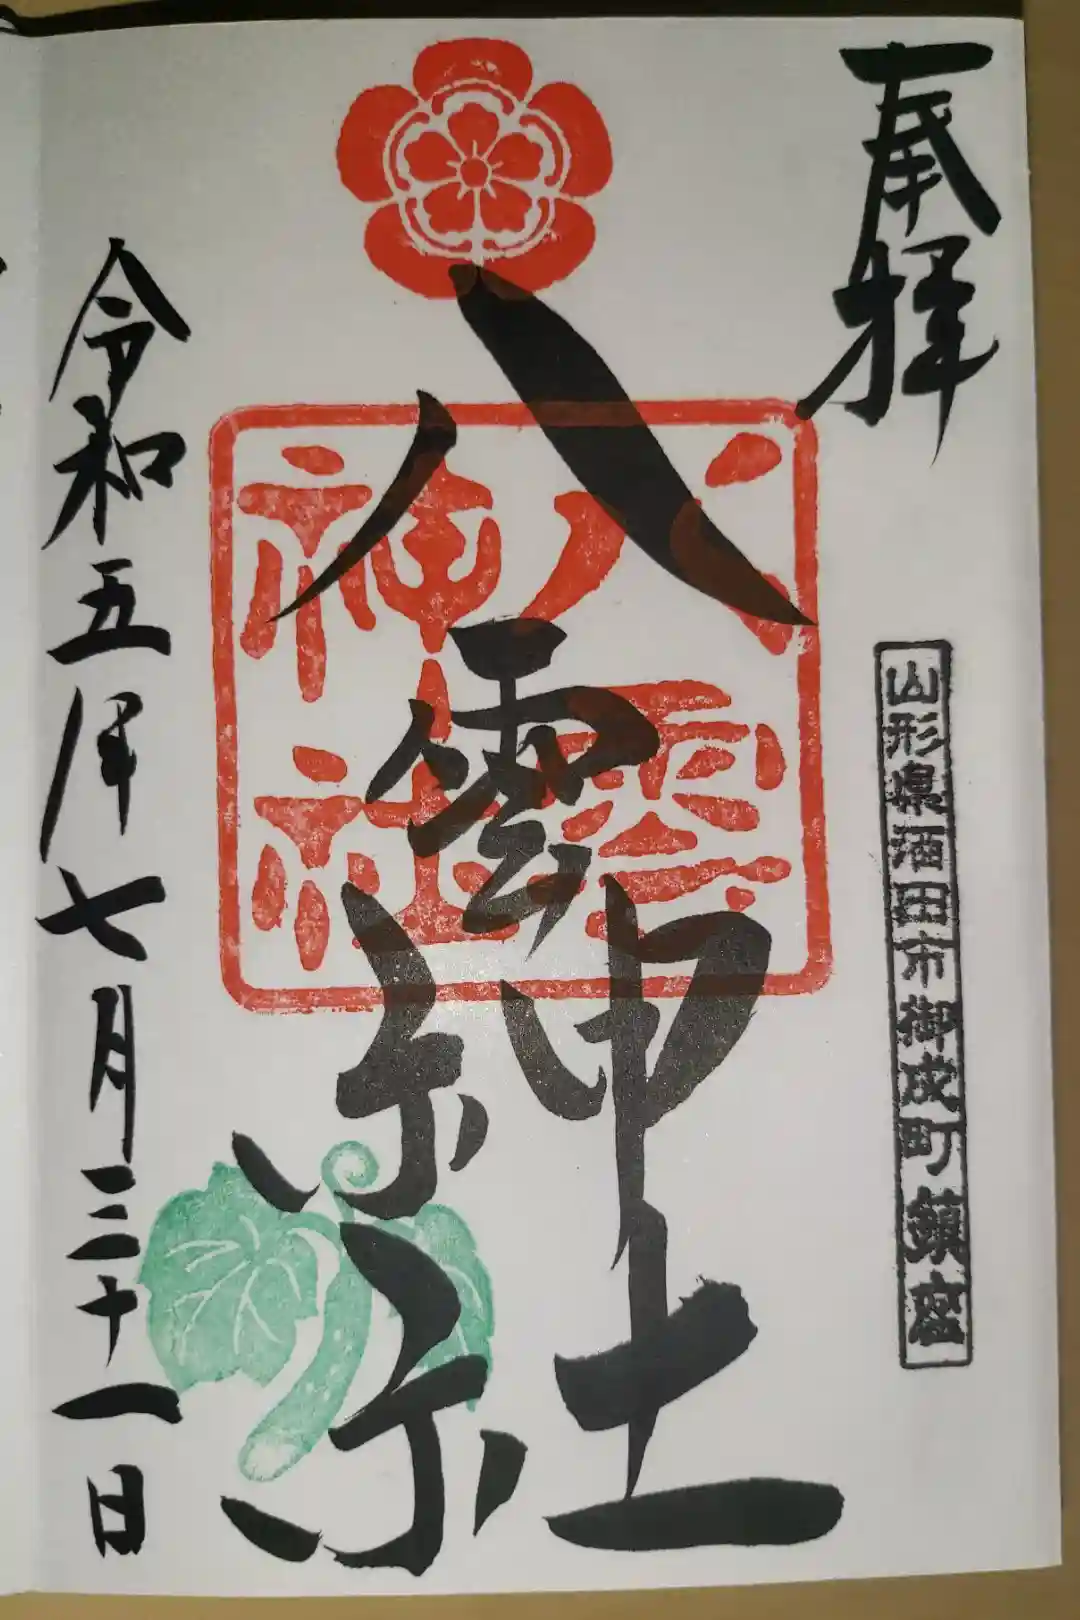 奉拝
山形県酒田市御成町鎮座
八雲神社
八雲
神社
令和五年七月三十一日